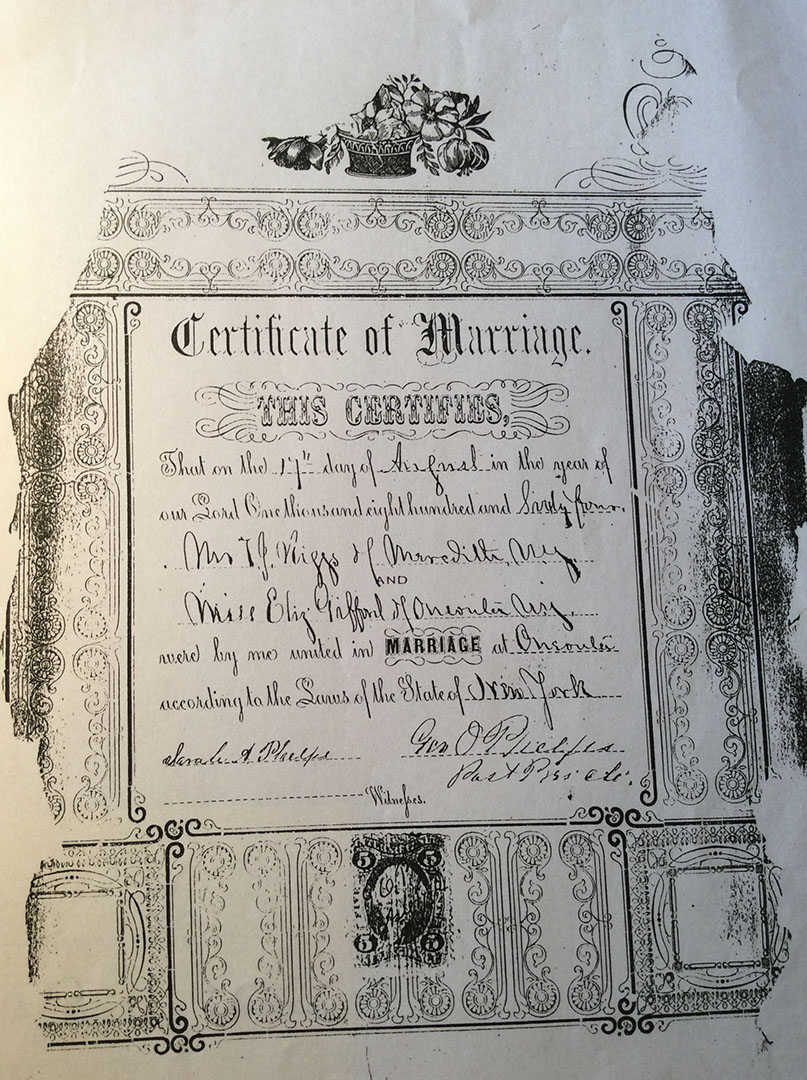 Certificate of Marriage.
THIS CERTIFIES,
That on the 17th day of August in the year of
our Lord One thousand eight hundred and Sixty four.
Mr T. J. of Meredith, N.Y.
AND
Miss Eliz Gifford of Oneonta N.Y.
were by me united in MARRIAGE at Oneonta
according to the Laws of the State of New York
Sarah A Phelps Geo O Phelps
Past
Witnesses.
5 5
FIVE
5 5